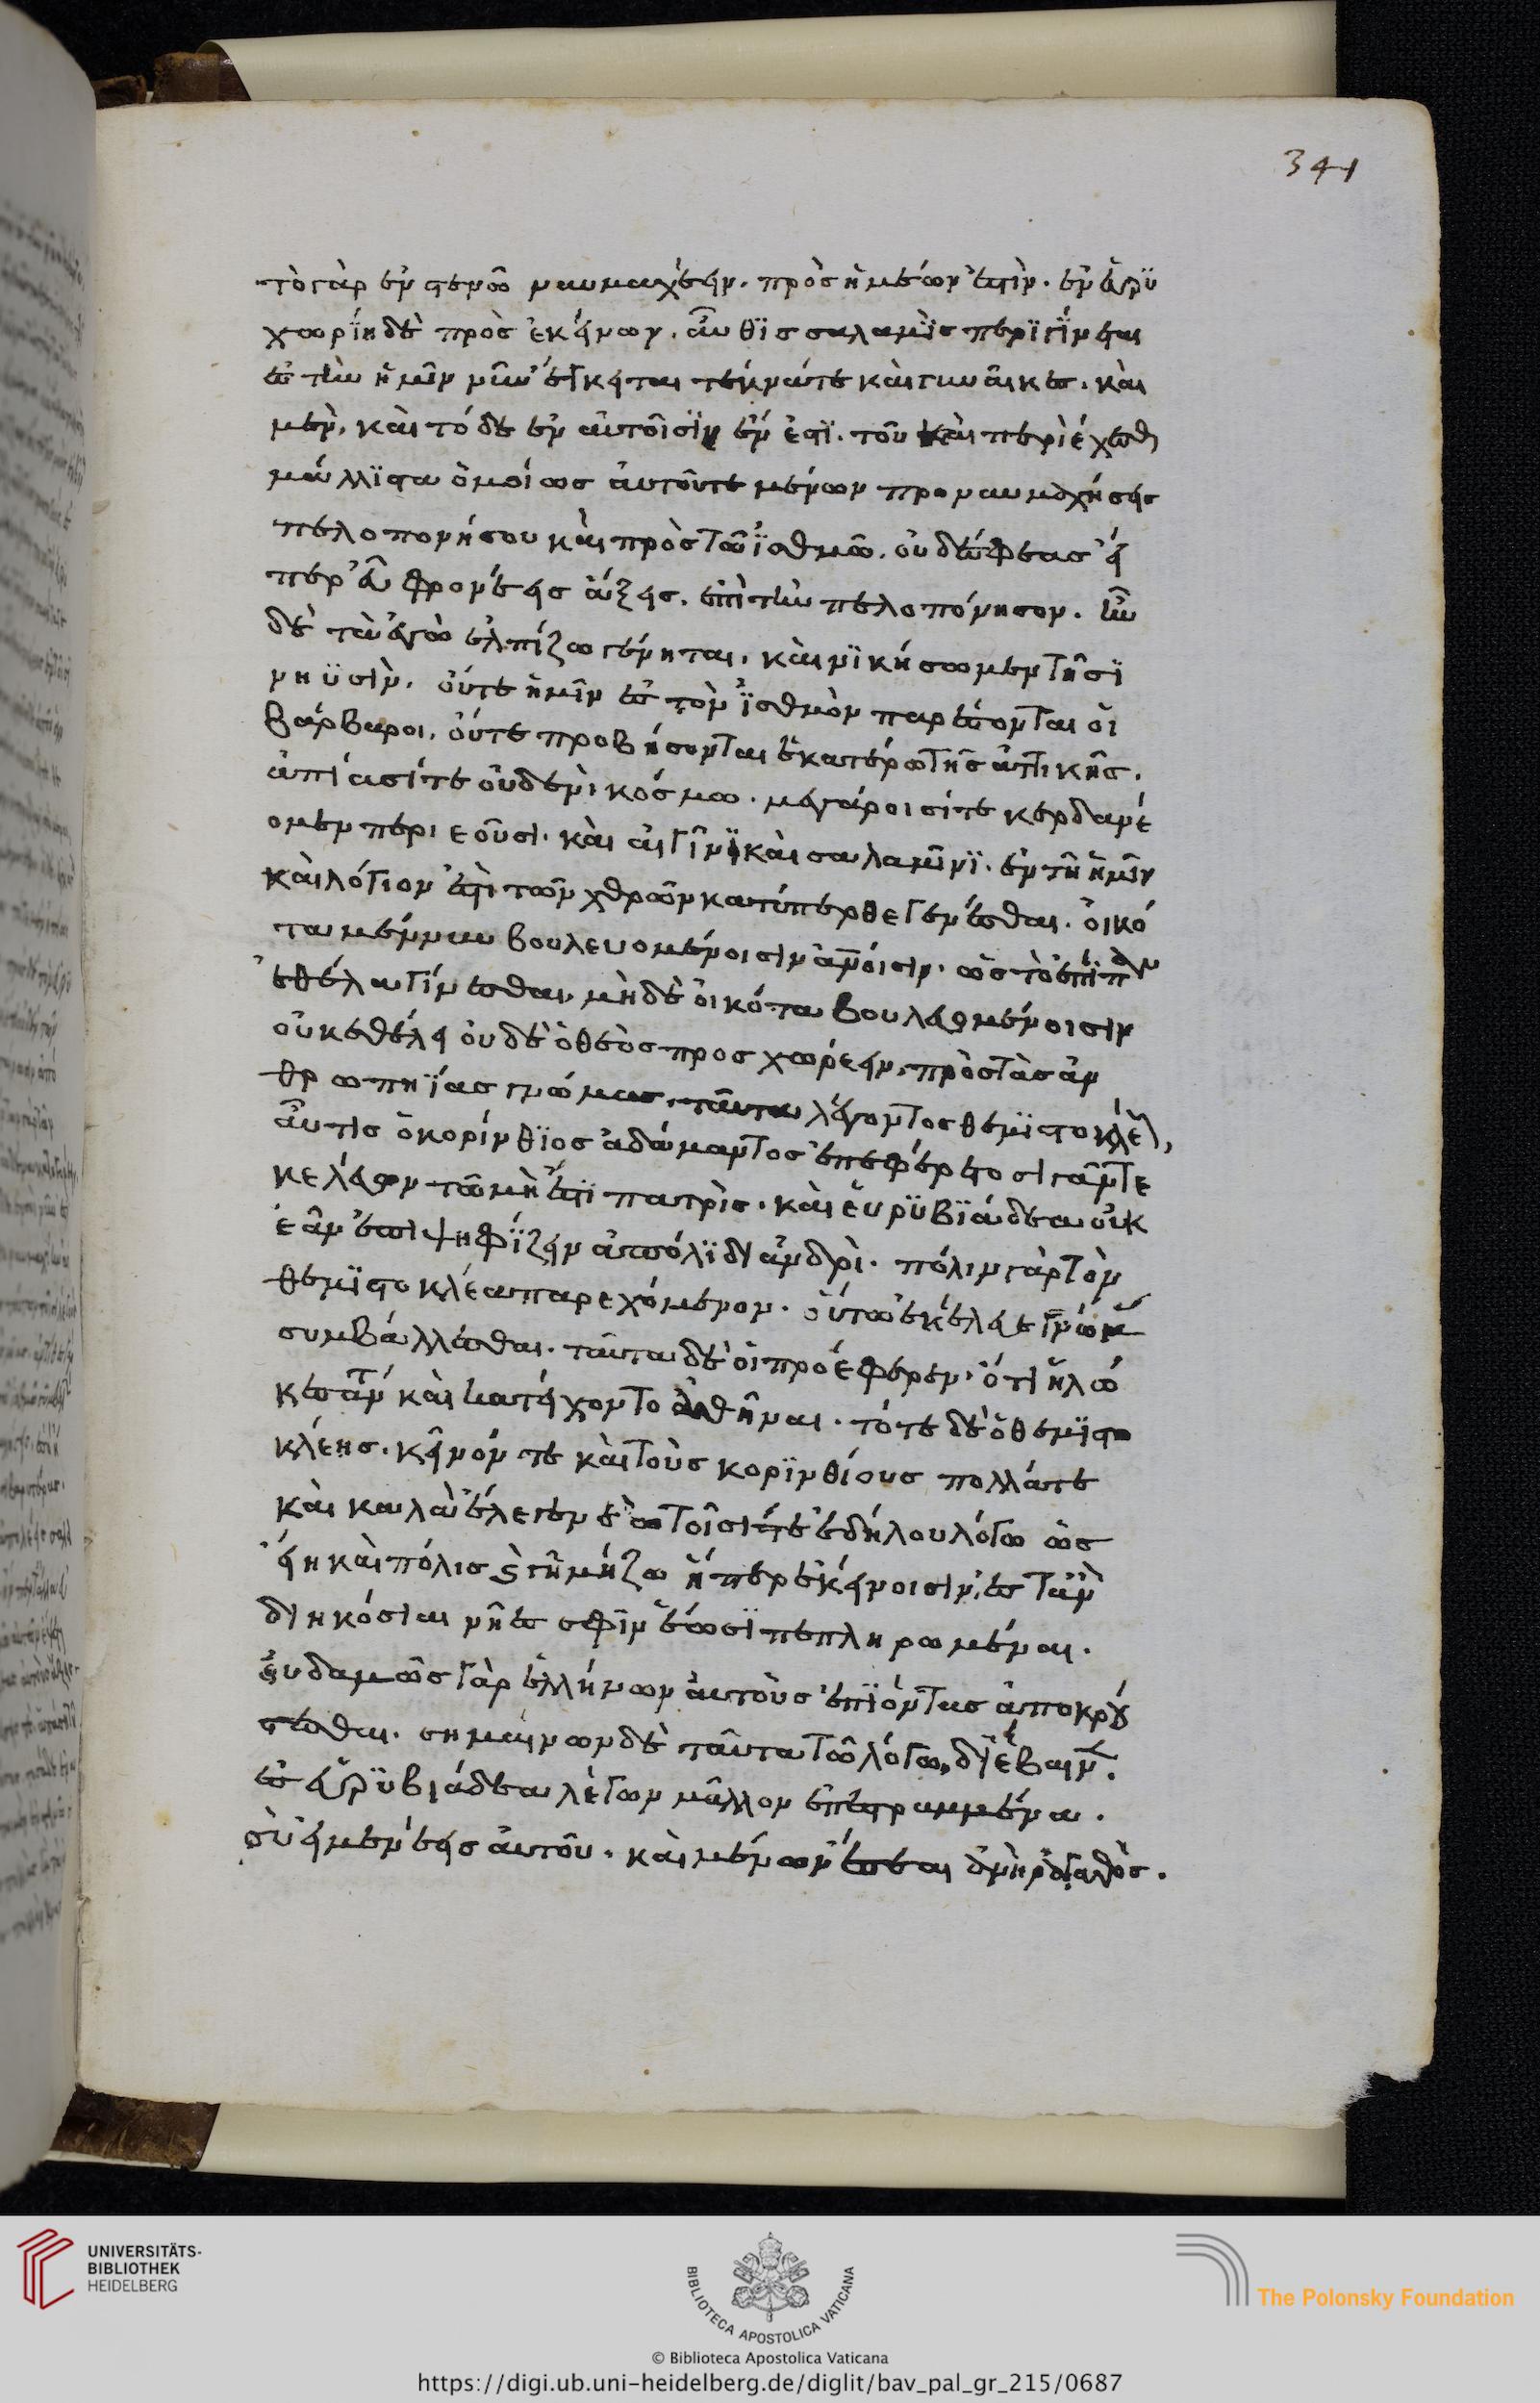 341
τὸ γὰρ ἐν στενῶ ναυμαχέειν. πρὸς ἡμέων ἐστὶν. ἐν εὐρϋ
χωρίη δὲ πρὸς ἐκείνων. αὖθϊς σαλαμὶς περϊγίνεται
ἐς τὴν ἡμῖν νῦν ἔκκειται τέκνάτε καὶ γυναῖκες. καὶ
μὲν, καὶ τόδε ἐν αὐτοῖσϊν ἔν ἐστϊ. τοῦ καὶ περιέχεσθε
μάλλϊστα ὁμοίως αὐτοῦτε μένων προναυμαχήσεις
πελοπονήσου καὶ πρὸς τῶ ἰσθμῶ. οὐδὲ σφεας εἴ
περ εὖ φρονέεις ἄξεις. ἐπὶ τὴν πελοπόνησον. ἢν
δὲ τὰ ἐγὼ ἐλπίζω γένηται, καὶ νϊκήσωμεν τῆσϊ
νηϋσὶν. οὔτε ἡμῖν ἐς τὸν ἰσθμὸν παρέσονται οἱ
βάρβαροι, οὔτε προβήσονται ἑκατέρω τῆς ἀττικῆς.
ἀπίασίτε οὐδενὶ κόσμω. μεγάροισίτε κερδανέ
ομεν περιεοῦσι. καὶ αἰγίνη καὶ σαλαμῖνϊ. ἐν τῆ ἡμῖν
καὶ λόγιον ἐστὶ τῶν χθρῶν κατύπερθε γενέσθαι. οἰκό
τα μέν νυν βουλευομένοισιν ἀνοισιν. ὡς τὸ ἐπίπαν
ἐθέλει γίνεσθαι, μὴ δὲ οἰκότα βουλευομένοισιν
οὐκ ἐθέλει οὐδὲ ὁ θεὸς προσχωρέειν, πρὸς τὰς ἀν
θρωπηίας γνώμας. ταῦτα λέγοντος θεμϊστοκλέ,
αὖτις ὁ κορίνθϊος ἀδάμαντος ἐπεφέρετο σιγᾶν τε
κελεύων τῶ μὴ ἔστϊ πατρὶς. καὶ εὐρϋβϊάδεα οὐκ
ἐᾶν ἐπιψηφϊζειν ἀπόλϊδι ἀνδρὶ. πόλιν γὰρ τὸν
θεμϊστοκλέα παρεχόμενον. οὕτω ἐκέλευε γνώμας
συμβάλλεσθαι. ταῦτα δέ οἱ προέφερεν. ὅτι ἡλώ
κεσάν τε καὶ κατείχοντο ἀθῆναι. τότε δὲ ὁ θεμϊστο
κλέης. κεῖνόν τε καὶ τοὺς κορϊνθίους πολλάτε
καὶ κακὰ ἔλεγεν ἑωτοῖσίτε ἐδήλου λόγω ὡς
εἴη καὶ πόλις καὶ γῆ μήζω ἤπερ ἐκείνοισιν, ἐς τὰν
διηκόσιαι νῆες σφῖν ἔωσϊ πεπληρωμέναι.
οὐδαμοῦς γὰρ ἑλλήνων αὐτοὺς ἐπϊόντας ἀποκρού
σεσθαι. σημαίνων δὲ ταῦτα τῶ λόγω, διέβαινε.
ἐς εὐρϋβιάδεα λέγων μᾶλλον ἐπεστραμμένα.
σὺ εἰ μενέεις αὐτοῦ. καὶ μένων ἔσεαι ἀνὴρ ἀγαθὸς.
UNIVERSITÄTS-
BIBLIOTHEK
HEIDELBERG
BIBLIOTECA APOSTOLICA VATICANA
The Polonsky Foundation
© Biblioteca Apostolica Vaticana
https://digi.ub.uni-heidelberg.de/diglit/bav_pal_gr_215/0687